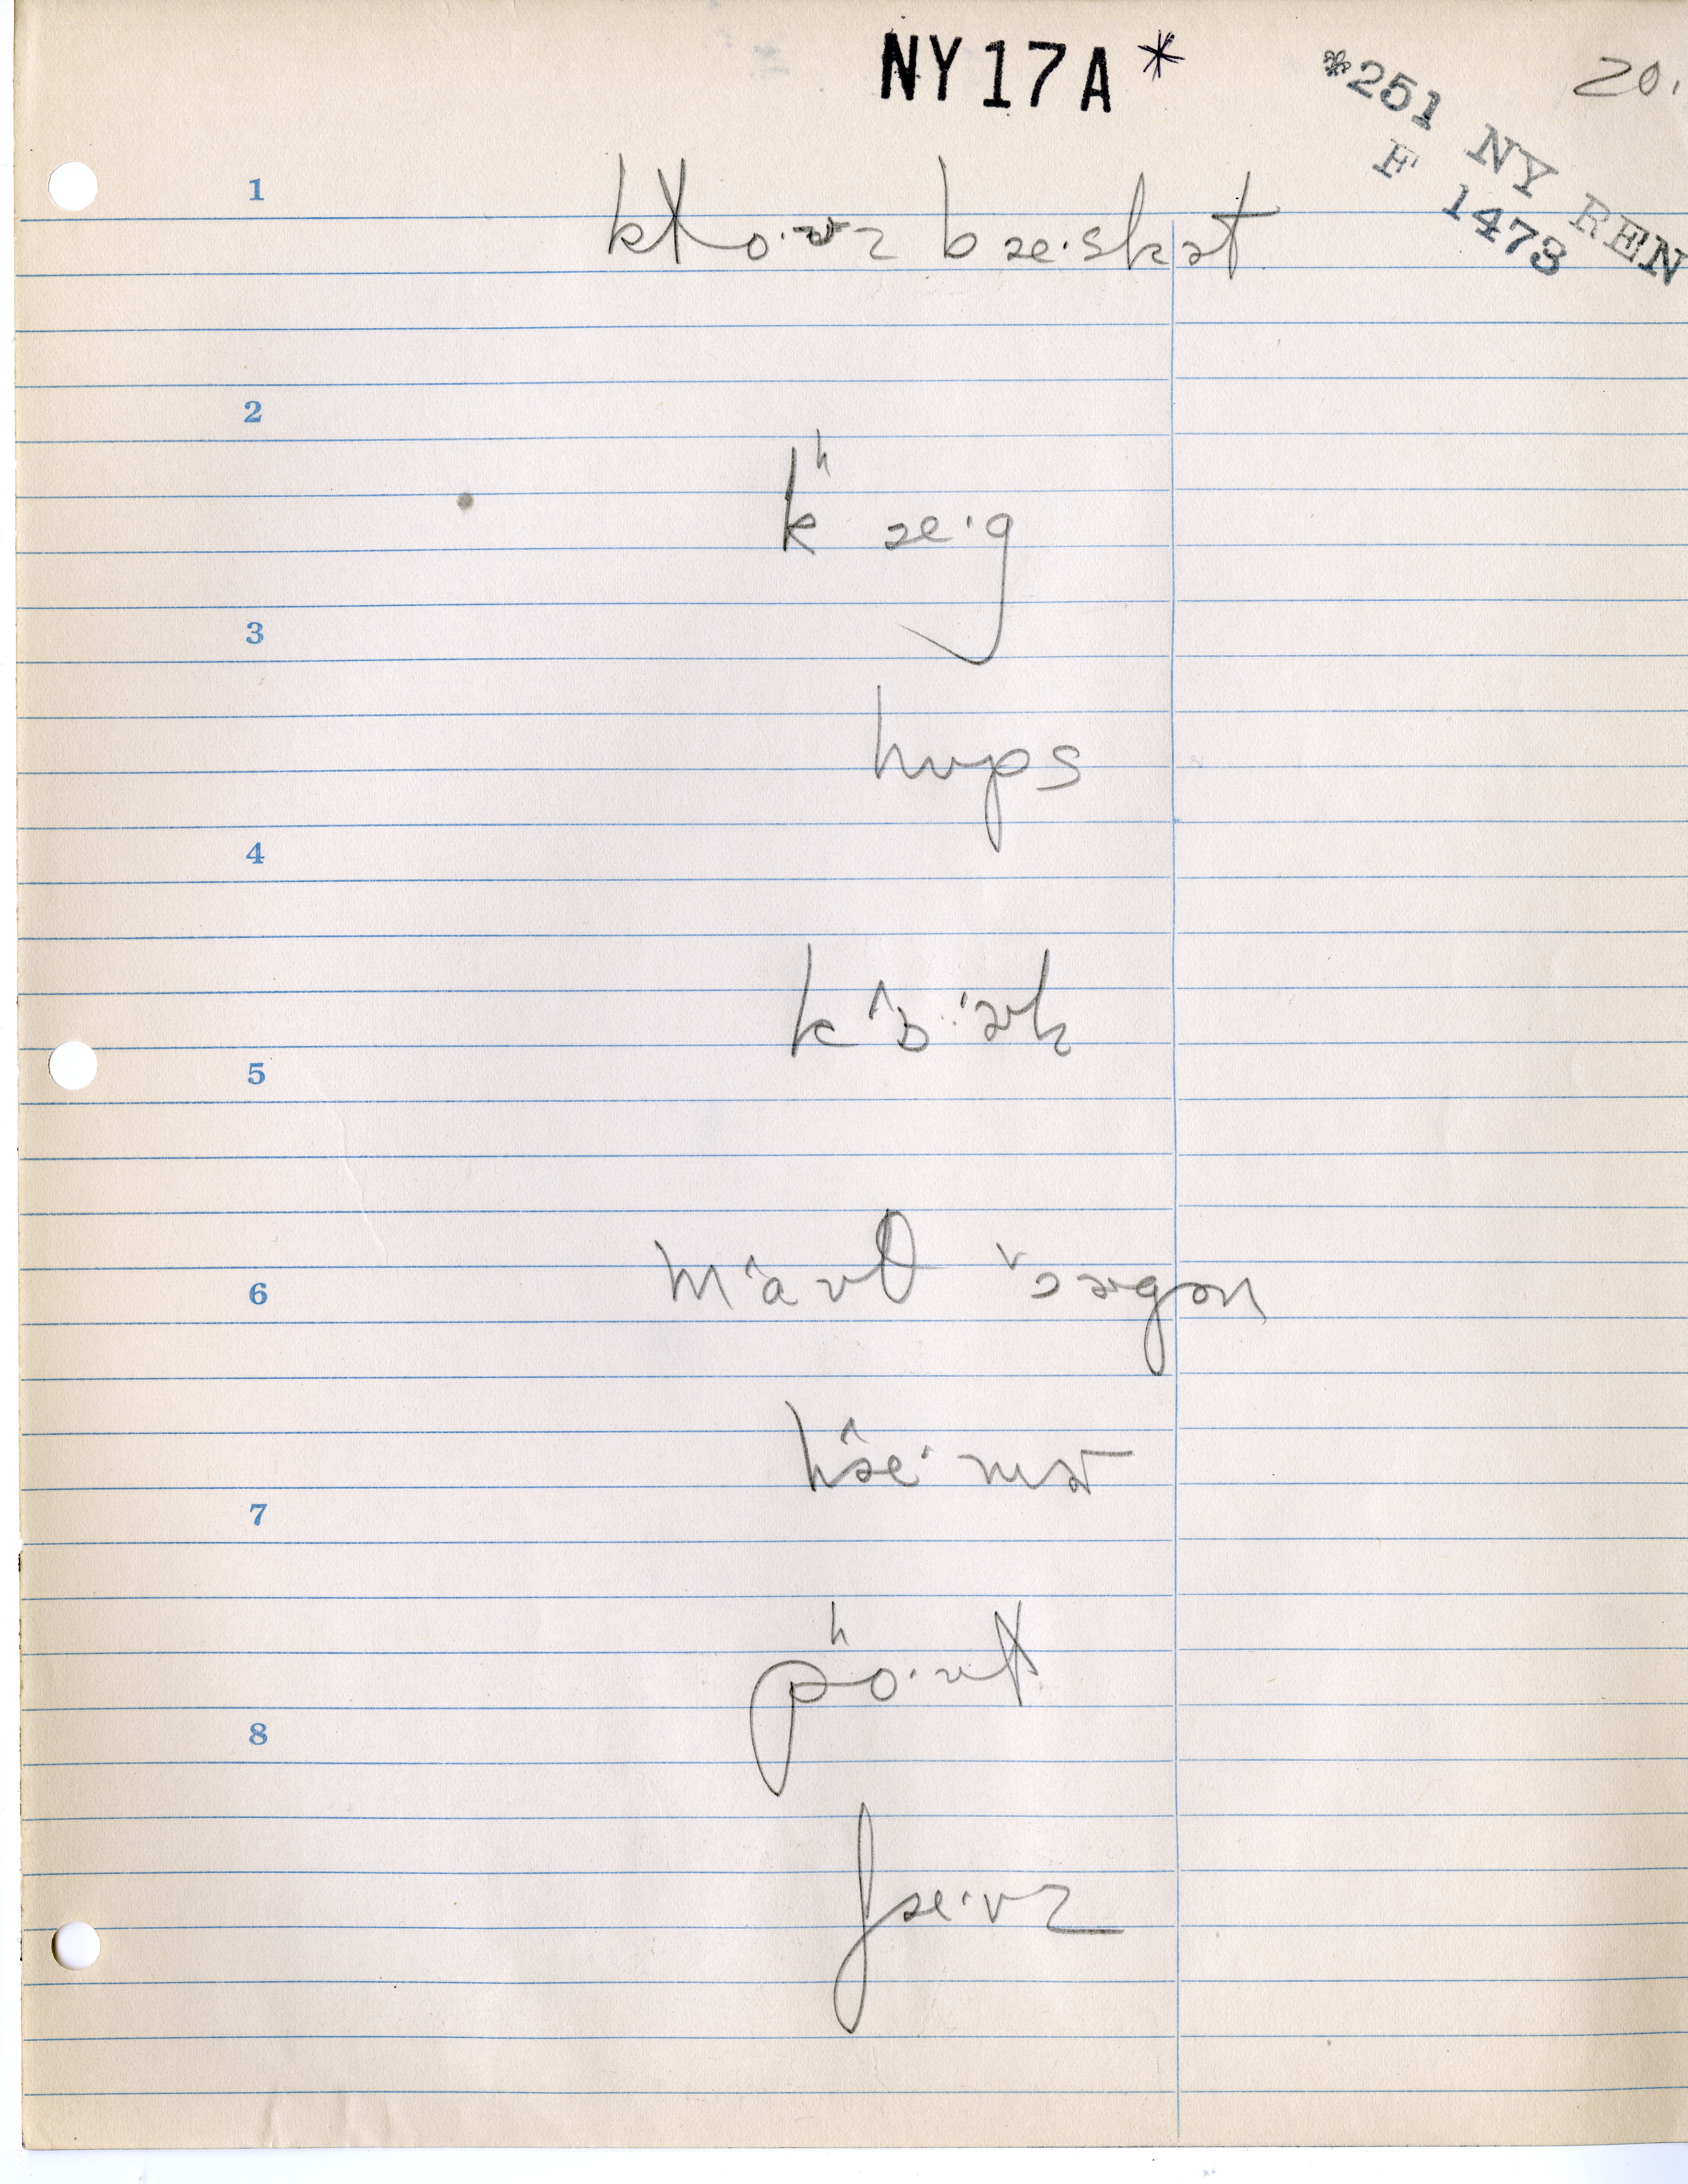 NY17A*
*251 NY REN
F 1473
20.
1
kɫo·ʊz bæ·skət
2
kʰæ·g
3
hʊps
4
kɔ̂··ək
5
mâʊθ ɔ̌əgən
6
hæ̂·mɚ
7
pʰo·ʊɫ
8
ʃæ·vz